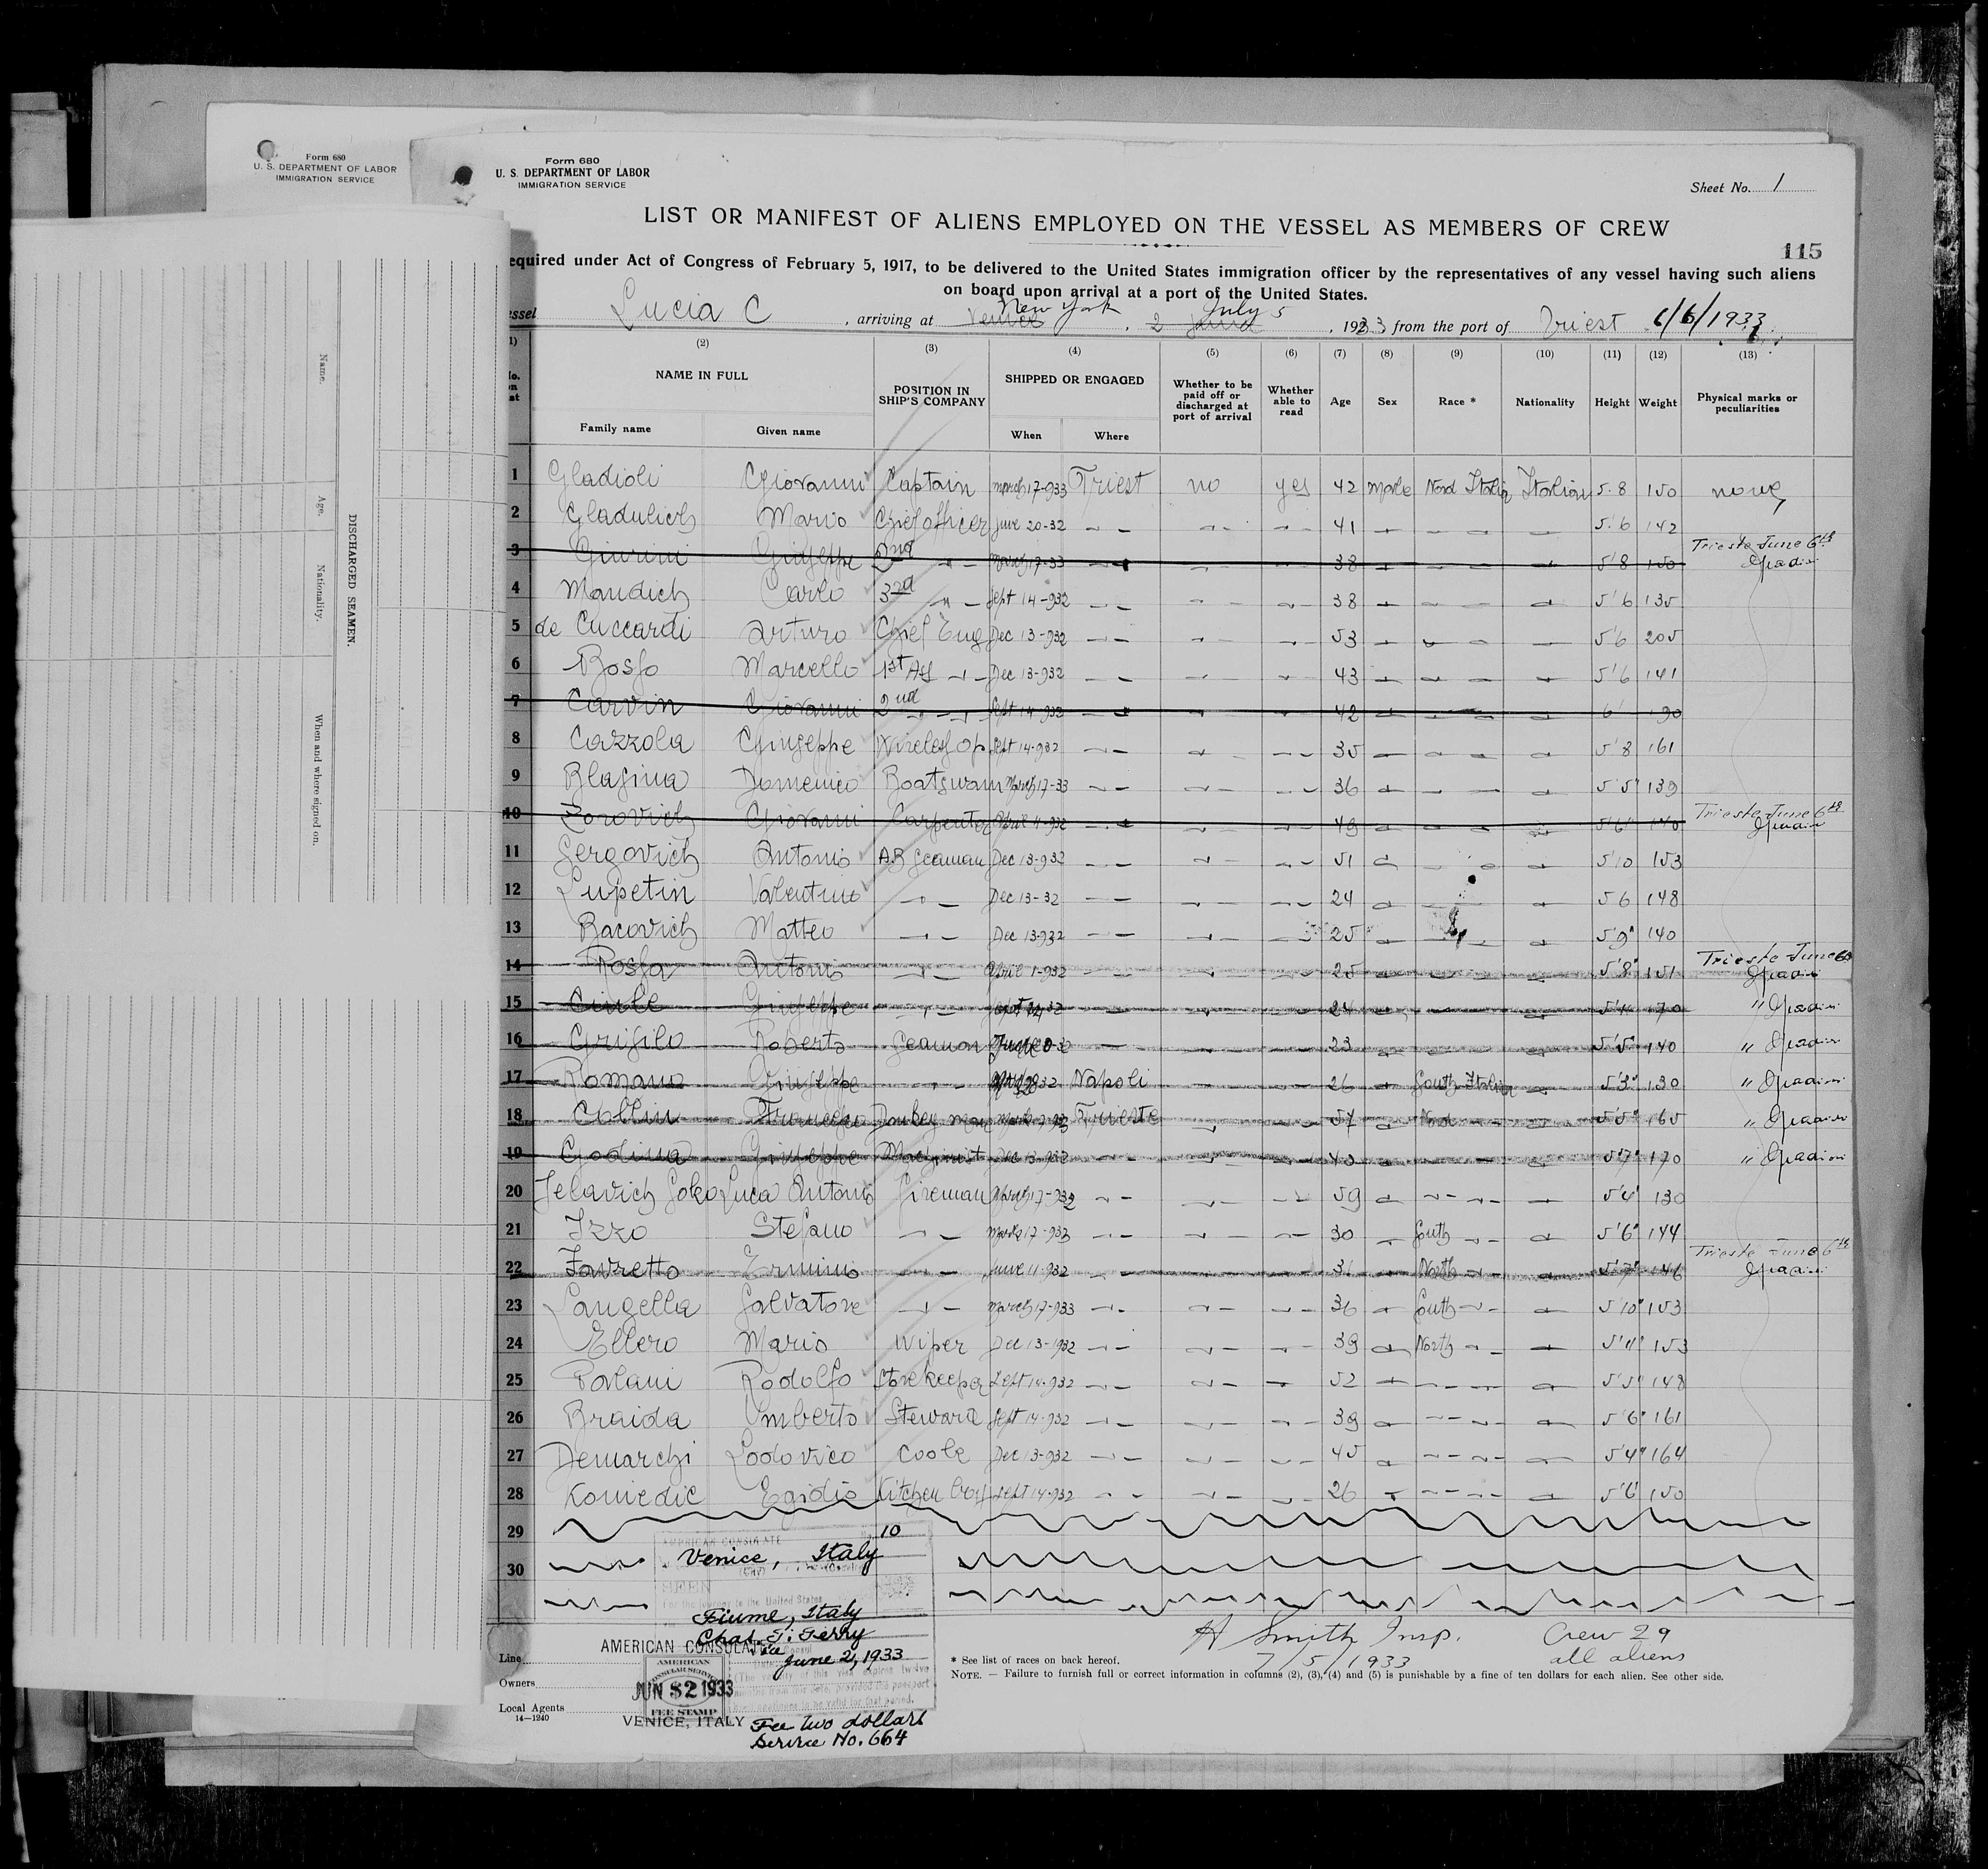 Form 680
U. S. DEPARTMENT OF LABOR
IMMIGRATION SERVICE
Form 680
U. S. DEPARTMENT OF LABOR
IMMIGRATION SERVICE
Sheet No. 1
LIST OR MANIFEST OF ALIENS EMPLOYED ON THE VESSEL AS MEMBERS OF CREW
115
equired under Act of Congress of February 5, 1917, to be delivered to the United States immigration officer by the representatives of any vessel having such aliens
on board upon arrival at a port of the United States.
New York July 5
essel Lucia C , arriving at Venice , 2 , 1933 from the port of Triest 6/6/1933
(1) (2) (3) (4) (5) (6) (7) (8) (9) (10) (11) (12) (13)
NAME IN FULL POSITION IN SHIP'S COMPANY SHIPPED OR ENGAGED Whether to be paid off or discharged at port of arrival Whether able to read Age Sex Race * Nationality Height Weight Physical marks or peculiarities
Family name Given name When Where
1 Gladioli Giovanni Captain March 17-933 Triest no yes 42 male Nord Italia Italian 5.8 150 none
2 Gladulich Mario Chief officer June 20-32 41 5.6 142
Trieste June 6th
3 Giurini Giuseppe 2nd March 17-33 38 5'8 150
4 Mandich Carlo 3rd Sept 14-932 38 5'6 135
5 de Cuccardi Arturo Chief Eng Dec 13-932 53 5'6 205
6 Bosso Marcello 1st Ass Dec 13-932 43 5'6 141
7 Carvin Giovanni 2nd Sept 14-932 42 6' 190
8 Cazzola Giuseppe Wireless Op Sept 14-932 35 5'8 161
9 Blasina Domenico Boatswain March 17-33 36 5'5" 139
Trieste June 6th
10 Zorovich Giovanni Carpenter April 11-932 49 5'6" 140
11 Gergovich Antonio AB Seaman Dec 13-932 51 5'10 153
12 Lupetin Valentino Dec 13-32 24 5 6 148
13 Racovich Matteo Dec 13-932 25 5'9" 140
Trieste June 6th
14 Rossa Antonio April 1-932 25 5'8" 151
15 Giuseppe 24 5'4" 170
16 Grisilo Roberto Seaman 23 5'5" 140
17 Romano Giuseppe Napoli 26 South Italian 5'3" 130
18 Cattin Francesco Donkey man Trieste 57 Nord 5'5" 165
19 Godina Giuseppe Machinist Dec 13-932 43 5'7" 170
20 Jelavich Soko Luca Antonio Fireman March 17-932 59 5'4" 130
21 Izzo Stefano March 17-933 30 South 5'6" 144
Trieste June 6th
22 Favretto Erminio June 11-932 31 North 5'7" 146
23 Langella Salvatore March 17-933 36 South 5'10" 153
24 Ellero Mario Wiper Dec 13-1932 39 North 5'4" 153
25 Polani Rodolfo Storekeeper Sept 14-932 52 5'5" 148
26 Braida Umberto Steward Sept 14-932 39 5'6" 161
27 Demarchi Lodovico Cook Dec 13-932 45 5'4" 164
28 Komedic Egidio Kitchen boy Sept 14-932 26 5'6" 150
29 10
AMERICAN CONSULATE
Venice, Italy
30
SEEN
For the journey to the United States
Fiume, Italy
Chas. T. Terry
AMERICAN CONSULATE
June 2, 1933
AMERICAN
CONSULAR SERVICE
JUN 2 1933
FEE STAMP
VENICE, ITALY
Fee two dollars
Service No. 664
Line
Owners
Local Agents
14—1240
H Smith Insp.
7/5/1933
Crew 29
all aliens
* See list of races on back hereof.
NOTE. — Failure to furnish full or correct information in columns (2), (3), (4) and (5) is punishable by a fine of ten dollars for each alien. See other side.
DISCHARGED SEAMEN.
Name.
Age.
Nationality.
When and where signed on.